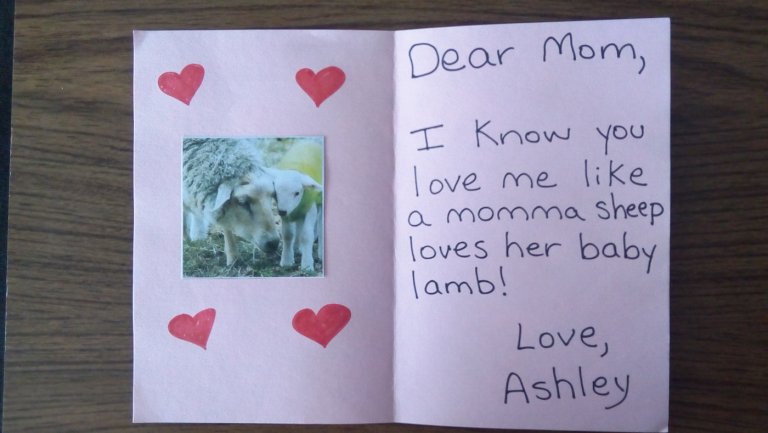 Dear Mom,
I know you
love me like
a momma sheep
loves her baby
lamb!
Love,
Ashley